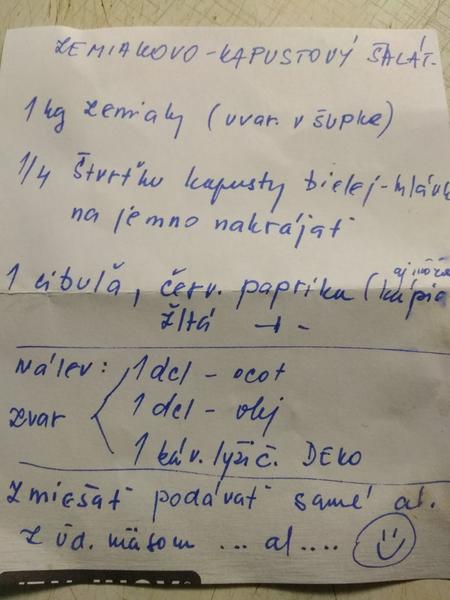 ZEMIAKOVO-KAPUSTOVÝ ŠALÁT.
1 kg zemiaky (uvar. v šupke)
1/4 Štvrťku kapusty bielej-hláv
na jemno nakrájať
aj
1 cibuľa, červ. paprika (kápia
žltá + -
Nálev: 1 dcl - ocot
zvar 1 dcl - olej
1 káv. lyžič. DEKO
Zmiešať podávať samé al.
z úd. mäsom ... al....